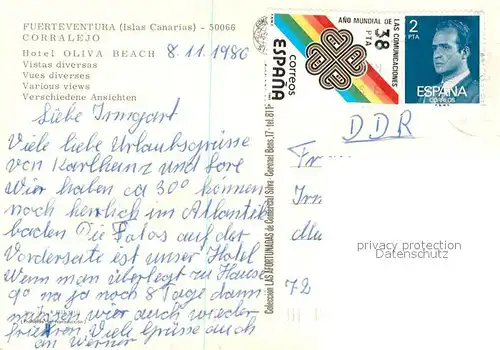 FUERTEVENTURA (Islas Canarias) - 50066
CORRALEJO
Hotel OLIVA BEACH 8.11.1986
Vistas diversas
Vues diverses
Various views
Verschiedene Ansichten
Liebe Irmgart
Viele liebe Urlaubsgrüsse
von Karlheinz und Lore
Wier haben ca 30° können
noch herrlich im Atlantik
baden Die Fotos auf der
Vordersate ist unser Hotel
Wenn man überlegt zu Hause
9° na ja noch 8 Tage dann
müssen wier auch wieder
frieren. Viele Grüsse auch
an Werner
Colección LAS AFORTUNADAS de Comercial Silva Coronel Bens, 17 - tel 81
AÑO MUNDIAL DE
LAS COMUNICACIONES
38
PTA
correos
ESPAÑA
2
PTA
ESPAÑA
CORREOS
DDR
Fr
Irm
Mu
72
privacy protection
Datenschutz